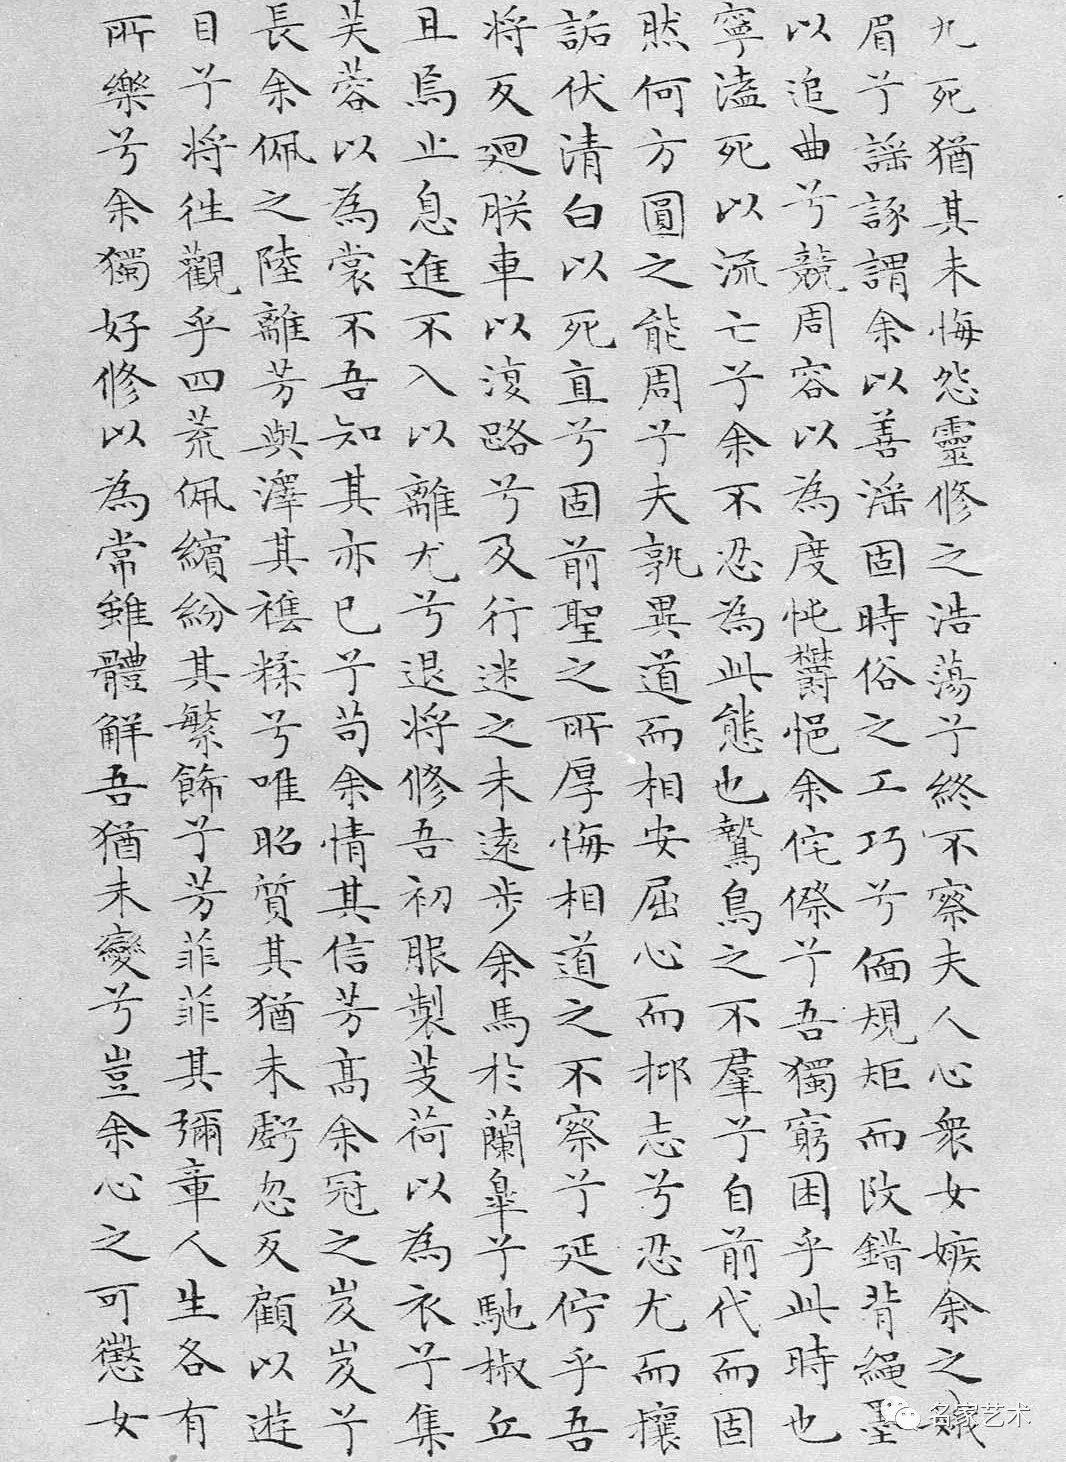 九死猶其未悔怨靈修之浩蕩兮終不察夫人心衆女嫉余之娥
眉兮謡諑謂余以善滛固時俗之工巧兮偭規矩而改錯背繩墨
以追曲兮競周容以為度忳鬱悒余侘傺兮吾獨窮困乎此時也
寧溘死以流亡兮余不忍為此態也鷙鳥之不羣兮自前代而固
然何方圓之能周兮夫孰異道而相安屈心而抑志兮忍尤而攘
詬伏清白以死直兮固前聖之所厚悔相道之不察兮延佇乎吾
將反廻朕車以復路兮及行迷之未遠步余馬於蘭皋兮馳椒丘
且焉止息進不入以離尤兮退將修吾初服製芰荷以為衣兮集
芙蓉以為裳不吾知其亦已兮苟余情其信芳高余冠之岌岌兮
長余佩之陸離芳與澤其襍糅兮唯昭質其猶未虧忽反顧以遊
目兮將徃觀乎四荒佩繽紛其繁飾兮芳菲菲其彌章人生各有
所樂兮余獨好修以為常雖體解吾猶未變兮豈余心之可懲女
名家艺术